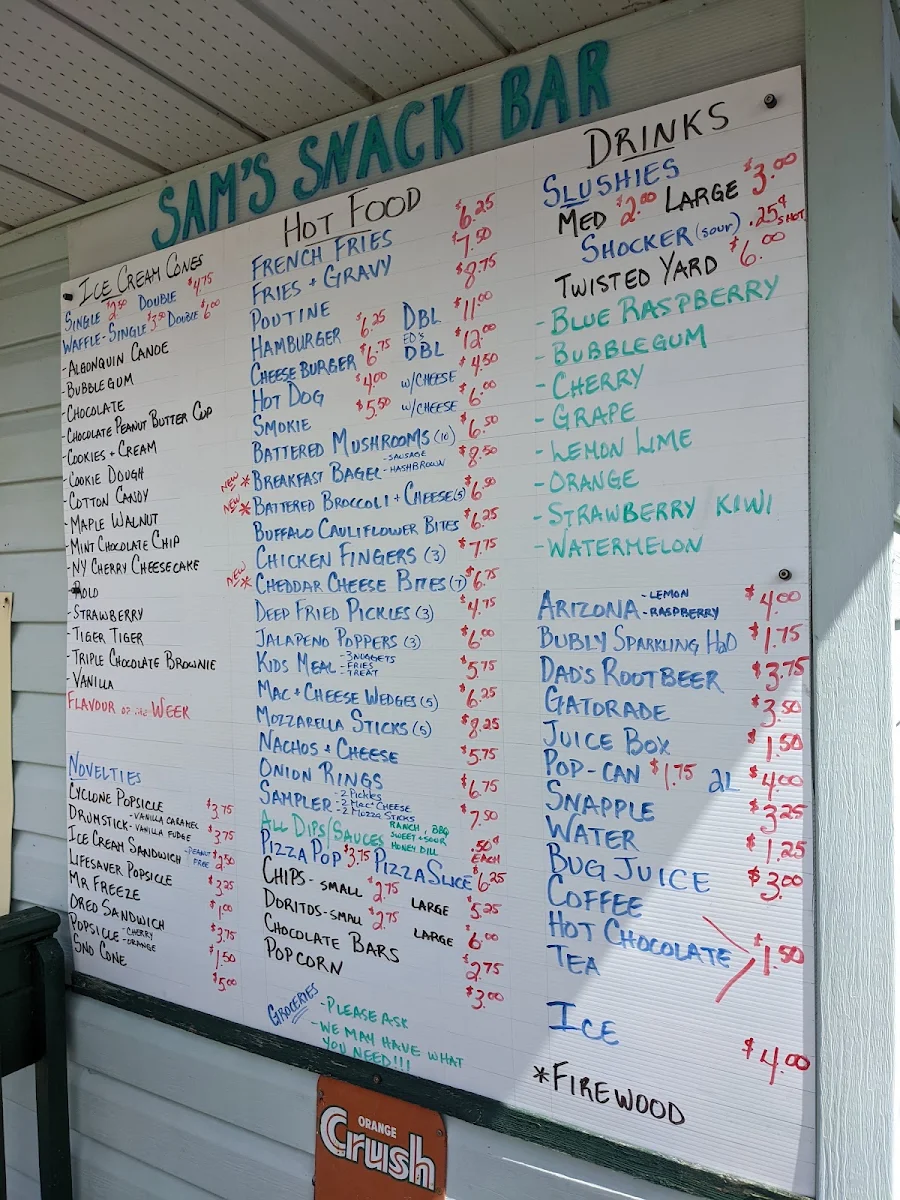 SAM'S SNACK BAR
ICE CREAM CONES
SINGLE $2.50 DOUBLE $4.75
WAFFLE - SINGLE $3.50 DOUBLE $6.00
- ALGONQUIN CANOE
- BUBBLEGUM
- CHOCOLATE
- CHOCOLATE PEANUT BUTTER CUP
- COOKIES + CREAM
- COOKIE DOUGH
- COTTON CANDY
- MAPLE WALNUT
- MINT CHOCOLATE CHIP
- NY CHERRY CHEESECAKE
- STRAWBERRY
- TIGER TIGER
- TRIPLE CHOCOLATE BROWNIE
- VANILLA
FLAVOUR OF THE WEEK
NOVELTIES
CYCLONE POPSICLE $3.75
DRUMSTICK - VANILLA CARAMEL - VANILLA FUDGE $3.75
ICE CREAM SANDWICH - PEANUT FREE $2.50
LIFESAVER POPSICLE $3.25
MR FREEZE $1.00
OREO SANDWICH $3.75
POPSICLE - CHERRY - ORANGE $1.50
SNO CONE $5.00
HOT FOOD
FRENCH FRIES $6.25
FRIES + GRAVY $7.50
POUTINE $8.75
HAMBURGER $6.25 DBL $11.00
CHEESEBURGER $6.75 ED'S DBL $12.00
HOT DOG $4.00 W/CHEESE $4.50
SMOKIE $5.50 W/CHEESE $6.00
BATTERED MUSHROOMS (10) $6.50
NEW * BREAKFAST BAGEL - SAUSAGE - HASHBROWN $8.50
NEW * BATTERED BROCCOLI + CHEESE (5) $6.50
BUFFALO CAULIFLOWER BITES $6.25
CHICKEN FINGERS (3) $7.75
NEW * CHEDDAR CHEESE BITES (7) $6.75
DEEP FRIED PICKLES (3) $4.75
JALAPENO POPPERS (3) $6.00
KIDS MEAL - 3 NUGGETS - FRIES - TREAT $5.75
MAC + CHEESE WEDGES (5) $6.25
MOZZARELLA STICKS (5) $8.25
NACHOS + CHEESE $5.75
ONION RINGS $6.75
SAMPLER - 2 PICKLES - 2 MAC + CHEESE - 2 MOZZA STICKS $7.50
ALL DIPS/SAUCES RANCH, BBQ SWEET + SOUR HONEY DILL .50¢ EACH
PIZZA POP $3.75 PIZZA SLICE $6.25
CHIPS - SMALL $2.75 LARGE $5.25
DORITOS - SMALL $2.75 LARGE $6.00
CHOCOLATE BARS $2.75
POPCORN $3.00
GROCERIES - PLEASE ASK
- WE MAY HAVE WHAT
YOU NEED!!!
DRINKS
SLUSHIES
MED $2.00 LARGE $3.00
SHOCKER (SOUR) .25¢ SHOT
TWISTED YARD $6.00
- BLUE RASPBERRY
- BUBBLEGUM
- CHERRY
- GRAPE
- LEMON LIME
- ORANGE
- STRAWBERRY KIWI
- WATERMELON
ARIZONA - LEMON - RASPBERRY $4.00
BUBLY SPARKLING H2O $1.75
DAD'S ROOTBEER $3.75
GATORADE $3.50
JUICE BOX $1.50
POP-CAN $1.75 2L $4.00
SNAPPLE $3.25
WATER $1.25
BUG JUICE $3.00
COFFEE
HOT CHOCOLATE $1.50
TEA
ICE $4.00
*FIREWOOD
ORANGE
Crush